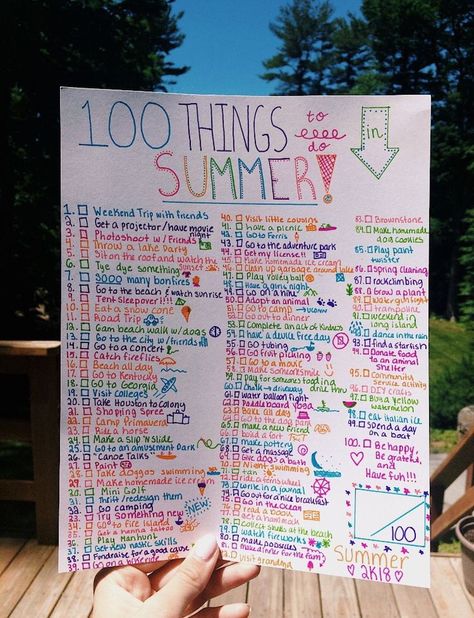 100 THINGS to do in
SUMMER!
1. Weekend Trip with friends
2. Get a projector/have movie night
3. Photoshoot w/ Friends
4. Throw a Lake Party
5. Sit on the roof and watch the sunset
6. Tye dye something
7. SOOO many bonfires
8. Go to the beach / watch sunrise
9. Tent Sleepover!!!!
10. Eat a snow cone
11. Road Trip
12. 6am beach walk w/ dogs
13. Go to the city w/ friends
14. Go to a concert
15. Catch fireflies
16. Beach all day
17. Go to Kenedy
18. Go to Georgia
19. Visit colleges
20. Take Houston to colony
21. Shopping Spree
22. Camp Primavera
23. Ride a horse
24. Make a Slip N Slide
25. Go to an amusement Park
26. Canoe Talks
27. Paint
28. Take doggos swimming
29. Make homemade ice cream
30. Mini Golf
31. Thrift/redesign them
32. Go camping
33. Try something new
NEW
34. Go to Fire Island
35. Get a henna tattoo
36. Play Manhunt
37. Get new Nastic skills
38. Fundraise for a good cause
39. Go on a bike ride
40. Visit little cousins
41. Have a picnic
42. Go to Ferris
43. Go to the adventure park
44. Get my license!!
45. Make homemade ice cream
46. Clean up garbage around lake
47. Play Volley ball
48. Have a girls night
49. Go on a hike
50. Adopt an animal
51. Go to camp → UConn
52. Go out to dinner
53. Complete an act of Kindness
54. Have a device free day
55. Go tubing
56. Go fruit picking
57. Go to a movie
58. Make homemade smoothies
59. Pay for someones food drive thru
60. Chalk → driveway
61. Water balloon fight
62. Paddleboard
63. Ball all day
64. Go to the dog park
65. Make a new friend
66. Build a fort
67. Make pottery
68. Get a massage
69. Give dogs a bath
70. Night swimming
71. Tan
72. Ride a ferris wheel
73. Write in a journal
74. Go out for a nice breakfast
75. Go in the ocean
76. Read a book
77. Get a hammock
78. Collect shells at the beach
79. Watch fireworks
80. Make popsicles
81. Make dinner for the fam
82. Visit grandma
83. Brownstone
84. Make homemade dog cookies
85. Play pant twister
86. Spring cleaning
87. Rockclimbing
88. Grow a plant
89. Water gun fight
90. Trampoline
91. Weekend in long island
92. Dance in the rain
93. Find a starfish
94. Donate food to an animal shelter
95. Community service activity
96. DIY crafts
97. Buy a Yellow watermelon
98. Eat Italian ice
99. Spend a day on a boat
100. Be happy,
Be grateful
and
Have fun!!!
100
Summer
2K18